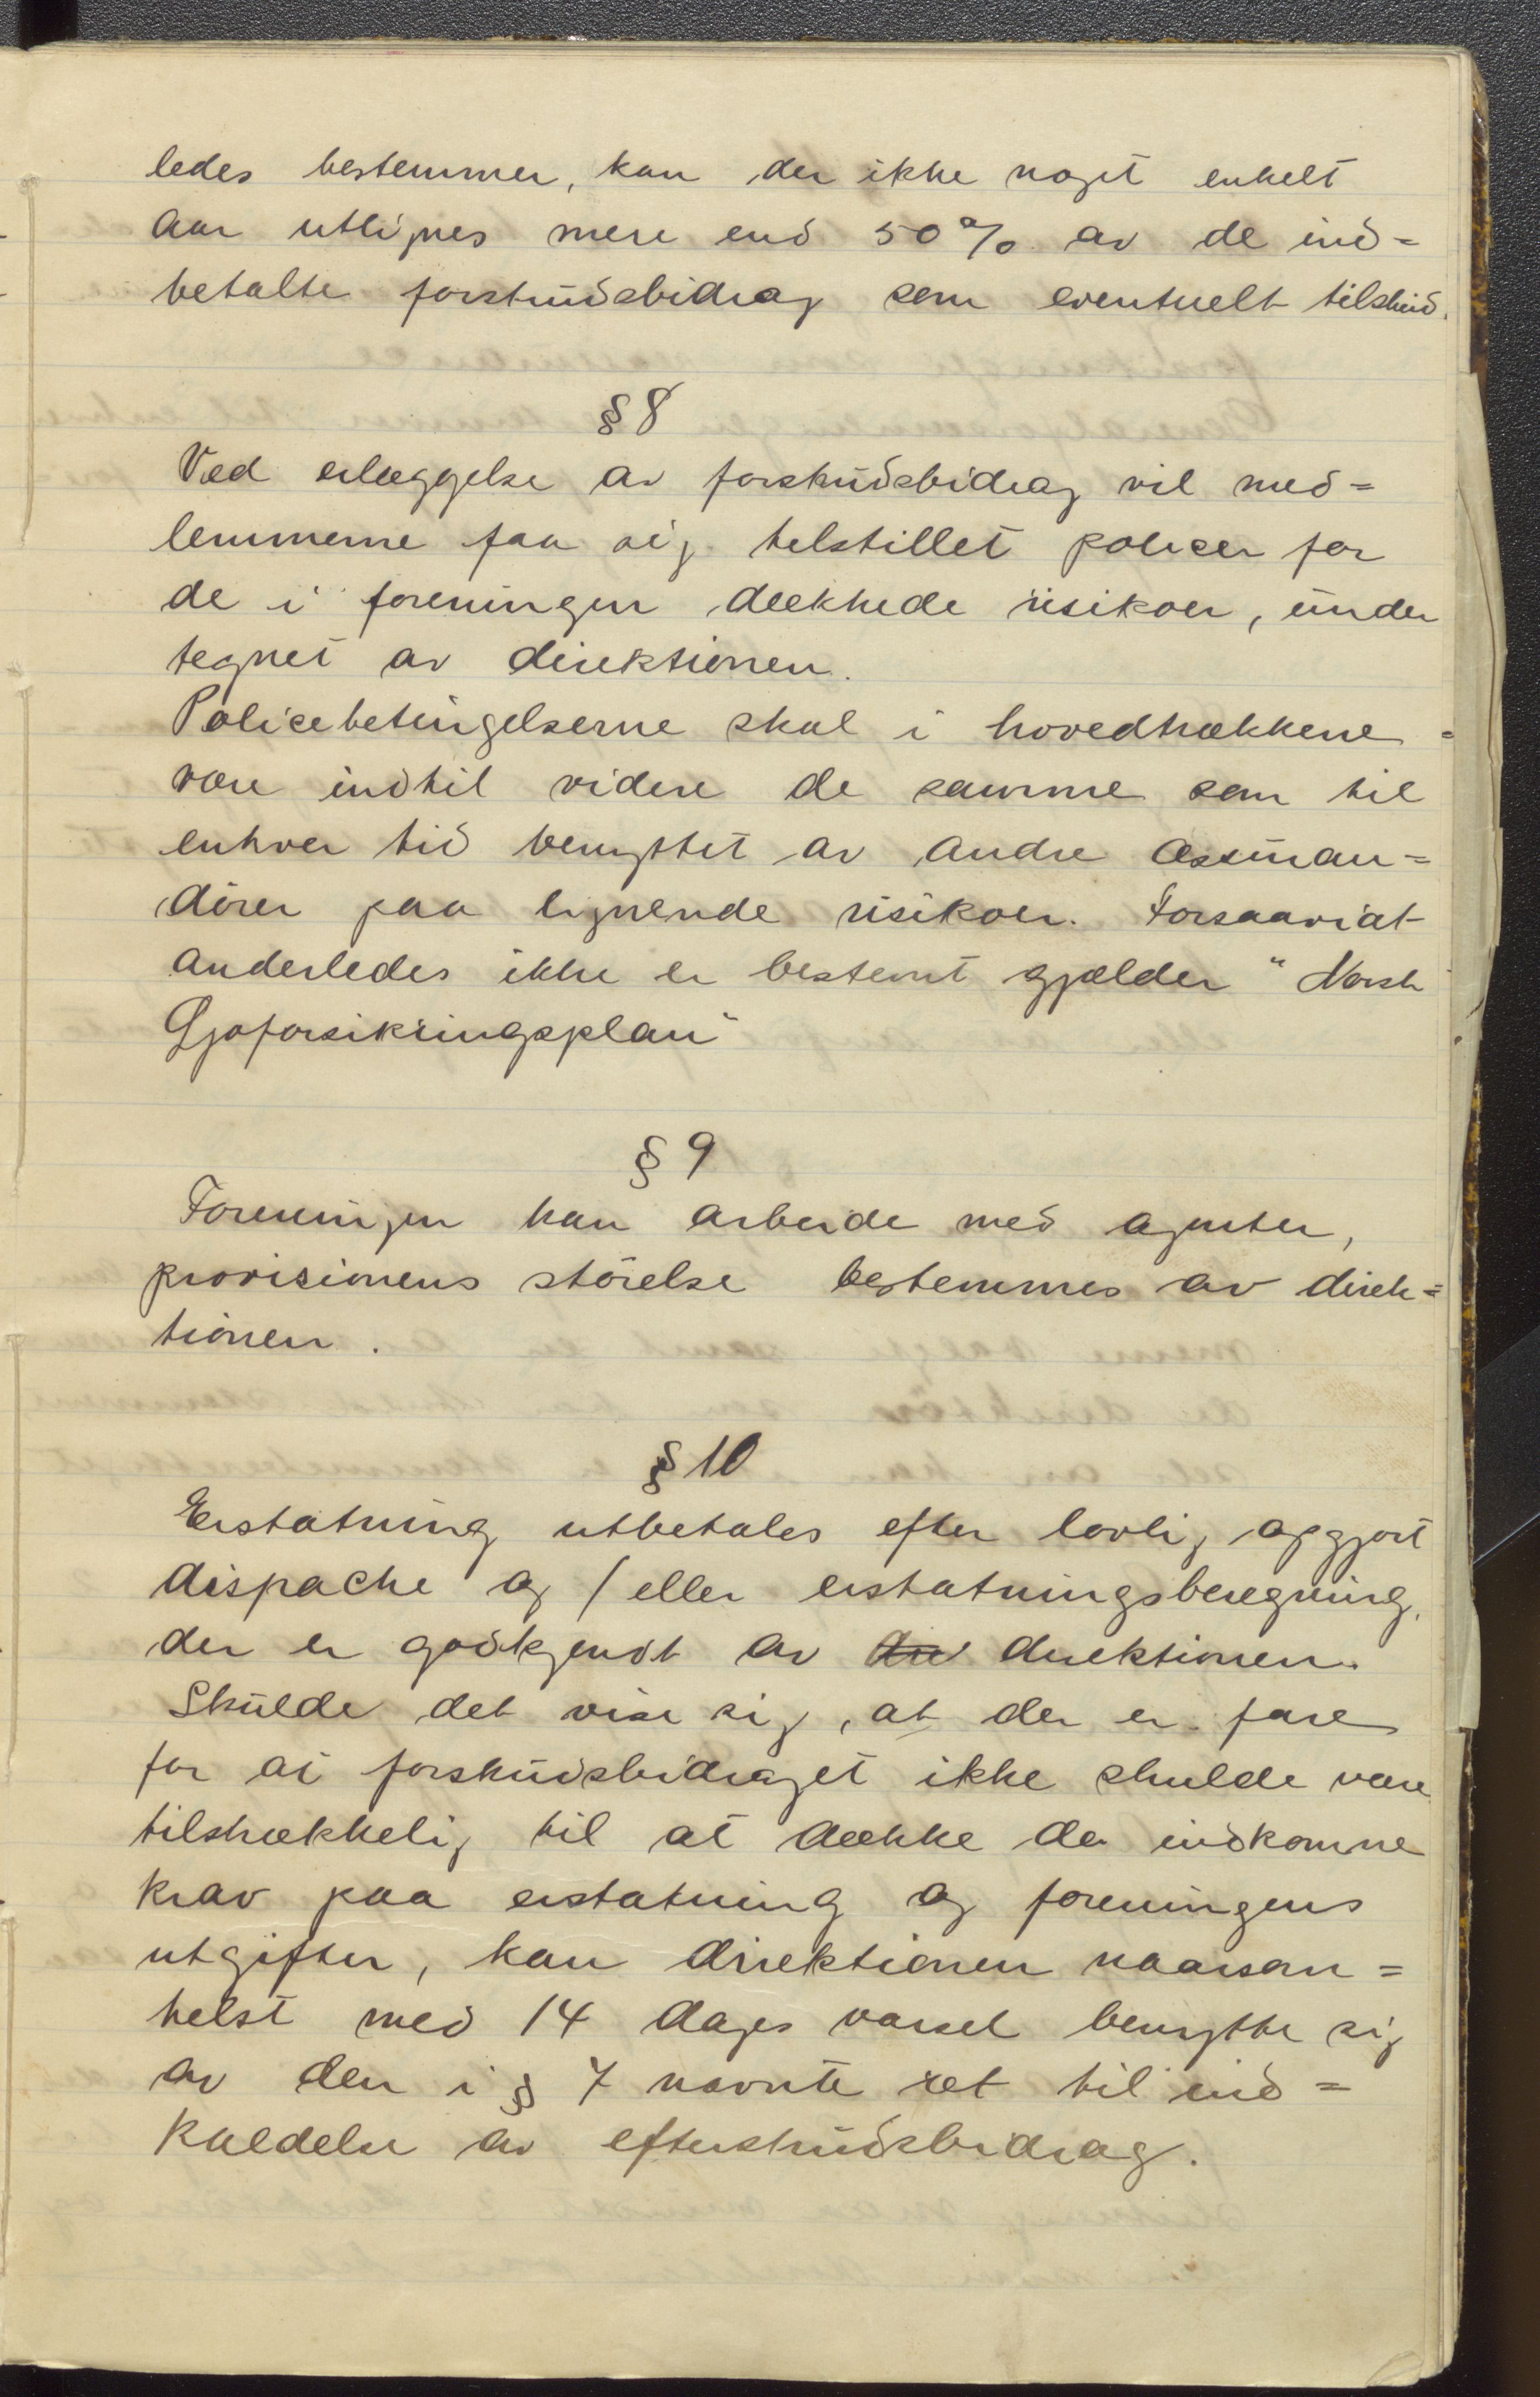 ledes bestemmer, kan der ikke noget enkelt
aar utlignes mere end 50% av de ind=
betalte forskudsbidrag som eventuelt tilskud.
§ 8
Ved erlæggelse av forskudsbidrag vil med=
lemmerne faa sig tilstillet policer for
de i foreningen dækkede risikoer, under
tegnet av direktionen.
Policebetingelserne skal i hovedtrækkene =
være indtil videre de samme som til
enhver tid benyttet av andre assuran=
dører paa lignende risikoer. Forsaavidt
anderledes ikke er bestemt gjælder "Norsk
Sjøforsikringsplan"
§ 9
Foreningen kan arbeide med agenter,
provisionens störelse bestemmes av direk=
tionen.
§ 10
Erstatning utbetales efter lovlig opgjort
dispache og / eller erstatningsberegning,
der er godkjendt av den direktionen.
Skulde det vise sig, at der er fare
for at forskudsbidraget ikke skulde være
tilstrækkelig til at dække de indkomne
krav paa erstatning og foreningens
utgifter, kan direktionen naarsom=
helst med 14 dages varsel benytte sig
av den i § 7 nævnte ret til ind=
kaldelse av efterskudsbidrag.